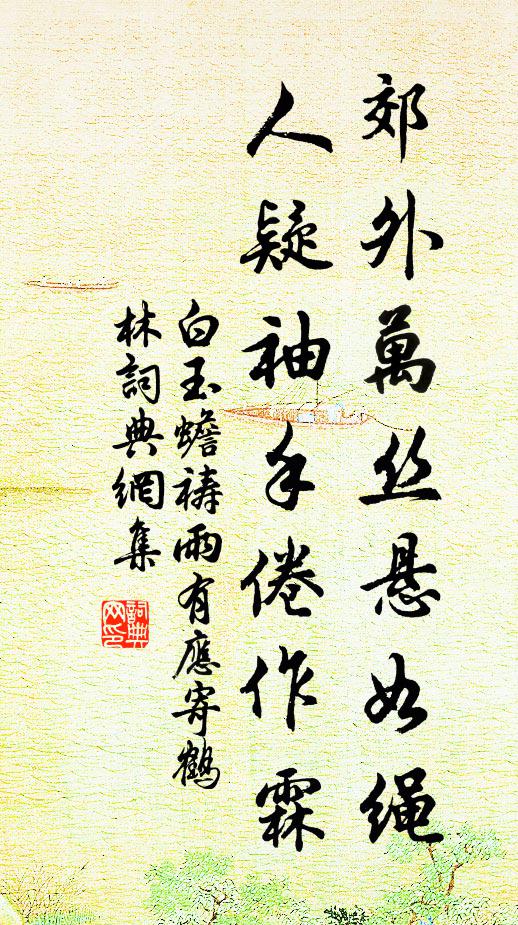 郊外萬丝悬如绳
人疑袖手倦作霖
白玉蟾禱雨有應寄鶴
林詞典網集
詞典网印